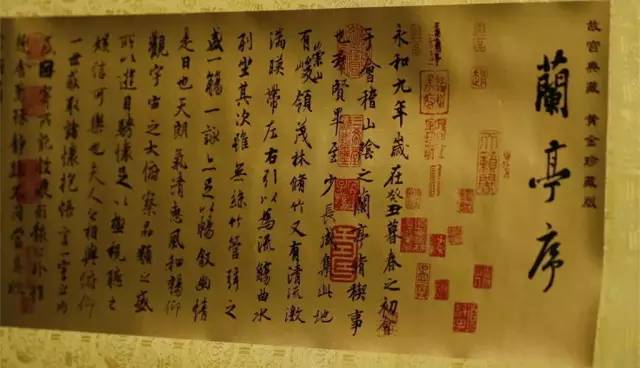 故宫典藏 黄金珍藏版
蘭亭序
永和九年歲在癸丑暮春之初會
于會稽山陰之蘭亭脩稧事
也羣賢畢至少長咸集此地
有崇山峻領茂林脩竹又有清流激
湍暎帶左右引以為流觴曲水
列坐其次雖無絲竹管弦之
盛一觴一詠亦足以暢叙幽情
是日也天朗氣清惠風和暢仰
觀宇宙之大俯察品類之盛
所以遊目騁懷足以極視聽之
娛信可樂也夫人之相與俯仰
一世或取諸懷抱悟言一室之內
或因寄所託放浪形骸之外雖
趣舍萬殊静躁不同當其欣